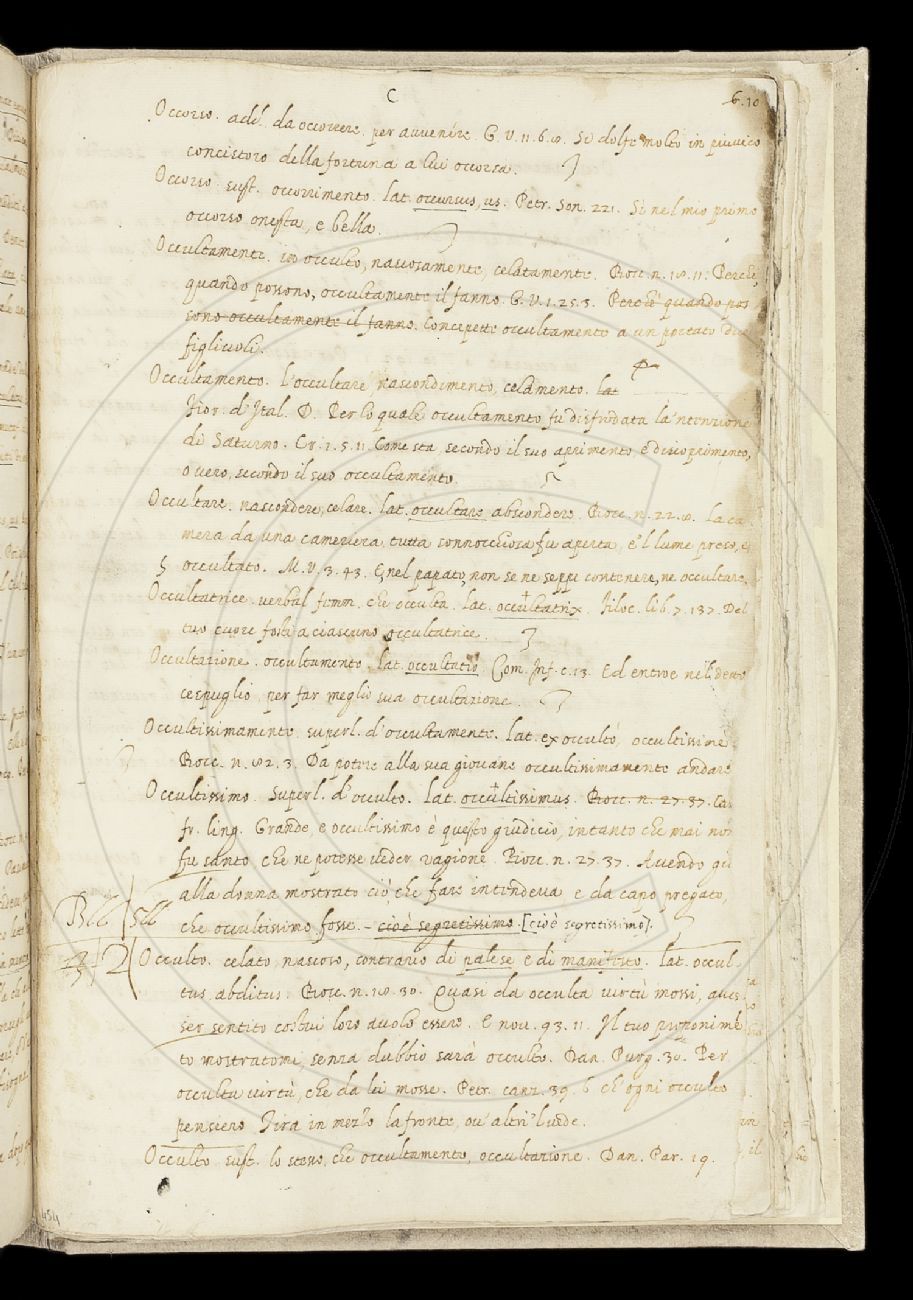 C
6.10
Occorso. add. da occorrere. per auuenire. G. V. 11. 6. 8. Si dolse molto in piuuico
concistoro della fortuna a lui occorsa.
Occorso sust. occorrimento. lat. occursus, us. Petr. Son. 221. Si nel mio primo
occorso onesta, e bella.
Occultamente. in occulto, nascosamente, celatamente. Bocc. n. 18. 11. Perche,
quando possono, occultamente il fanno. G. V. 1. 25. 3. Perche quando pos
sono occultamente il fanno. Concepette occultamente a un portato due
figliuoli.
Occultamento. l'occultare nascondimento, celamento. lat
Fior. d'Ital. D. Per lo quale occultamento fu disfrodata la 'ntenzione
di Saturno. Cr. 2. 5. 11. Come sta, secondo il suo aprimento e discoprimento,
o vero, secondo il suo occultamento.
Occultare. nascondere, celare. lat. occultare abscondere. Bocc. n. 22. 8. La ca
mera da una cameriera tutta sonnocchiosa fu aperta, e 'l lume preso, e
occultato. M. V. 3. 43. E nel papato, non se ne seppe contenere, ne occultare.
Occultatrice. verbal femm. che occulta. lat. occultatrix. Filoc. lib. 7. 137. Del
tuo cuore fosti a ciascuno occultatrice.
Occultazione. occultamento. lat. occultatio. Com. Inf. c. 13. Ed entroe nel dento
cespuglio per far meglio sua occultazione.
Occultissimamente. superl. d'occultamente. lat. ex occulto, occultissime.
Bocc. n. 82. 3. Da potere alla sua giovane occultissimamente andare
Occultissimo. Superl. d'occulto. lat. occultissimus. Bocc. n. 27. 37. Ca
fr. ling. Grande, e occultissimo è questo giudicio, intanto che mai non
fu santo, che ne potesse veder ragione. Bocc. n. 27. 37. Avendo gia
alla donna mostrato ciò, che fare intendeva e da capo pregato,
che occultissimo fosse. - cioè segretissimo. [cioè segretissimo].
Occulto. celato, nascoso, contrario di palese e di manifesto. lat. occul-
tus abditus. Bocc. n. 18. 30. Quasi da occulta virtù mossi, aues
ser sentito costui loro avolo essere. E nov. 93. 11. Il tuo proponime
to mostratomi, senza dubbio sarà occulto. Dan. Purg. 30. Per
occulta virtù, che da lei mosse. Petr. canz. 39. 6 ch'ogni occulto
pensiero Tira in mezzo la fronte, ou' altri 'l uede.
Occulto sust. lo stesso, che occultamento, occultazione. Dan. Par. 19.
454